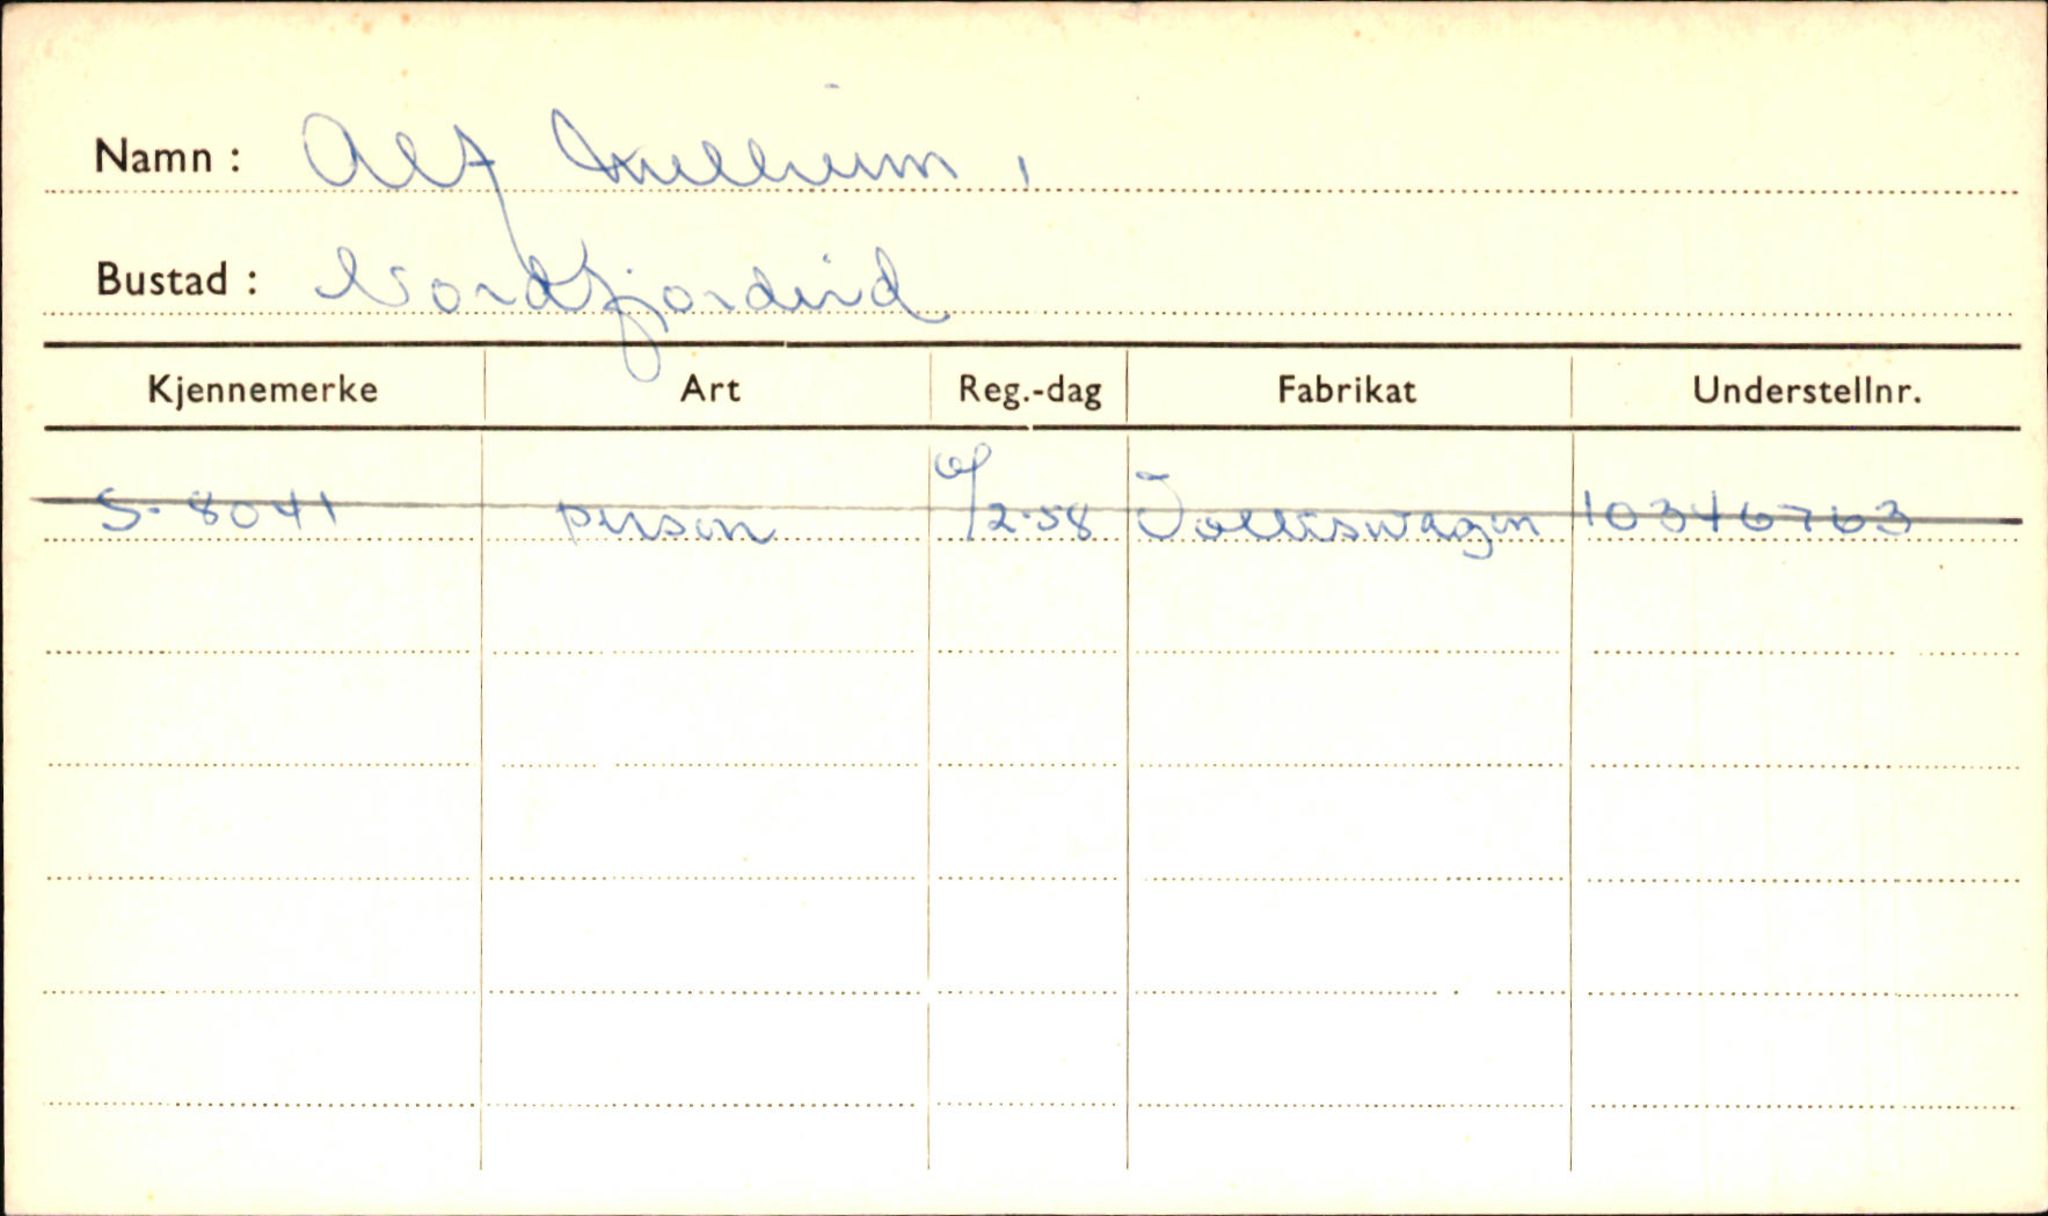 Namn : Alf
Bustad : Nordfjordeid
Kjennemerke Art Reg.-dag Fabrikat Understellnr.
S-8041 person 6/2-58 Volkswagen 10346763